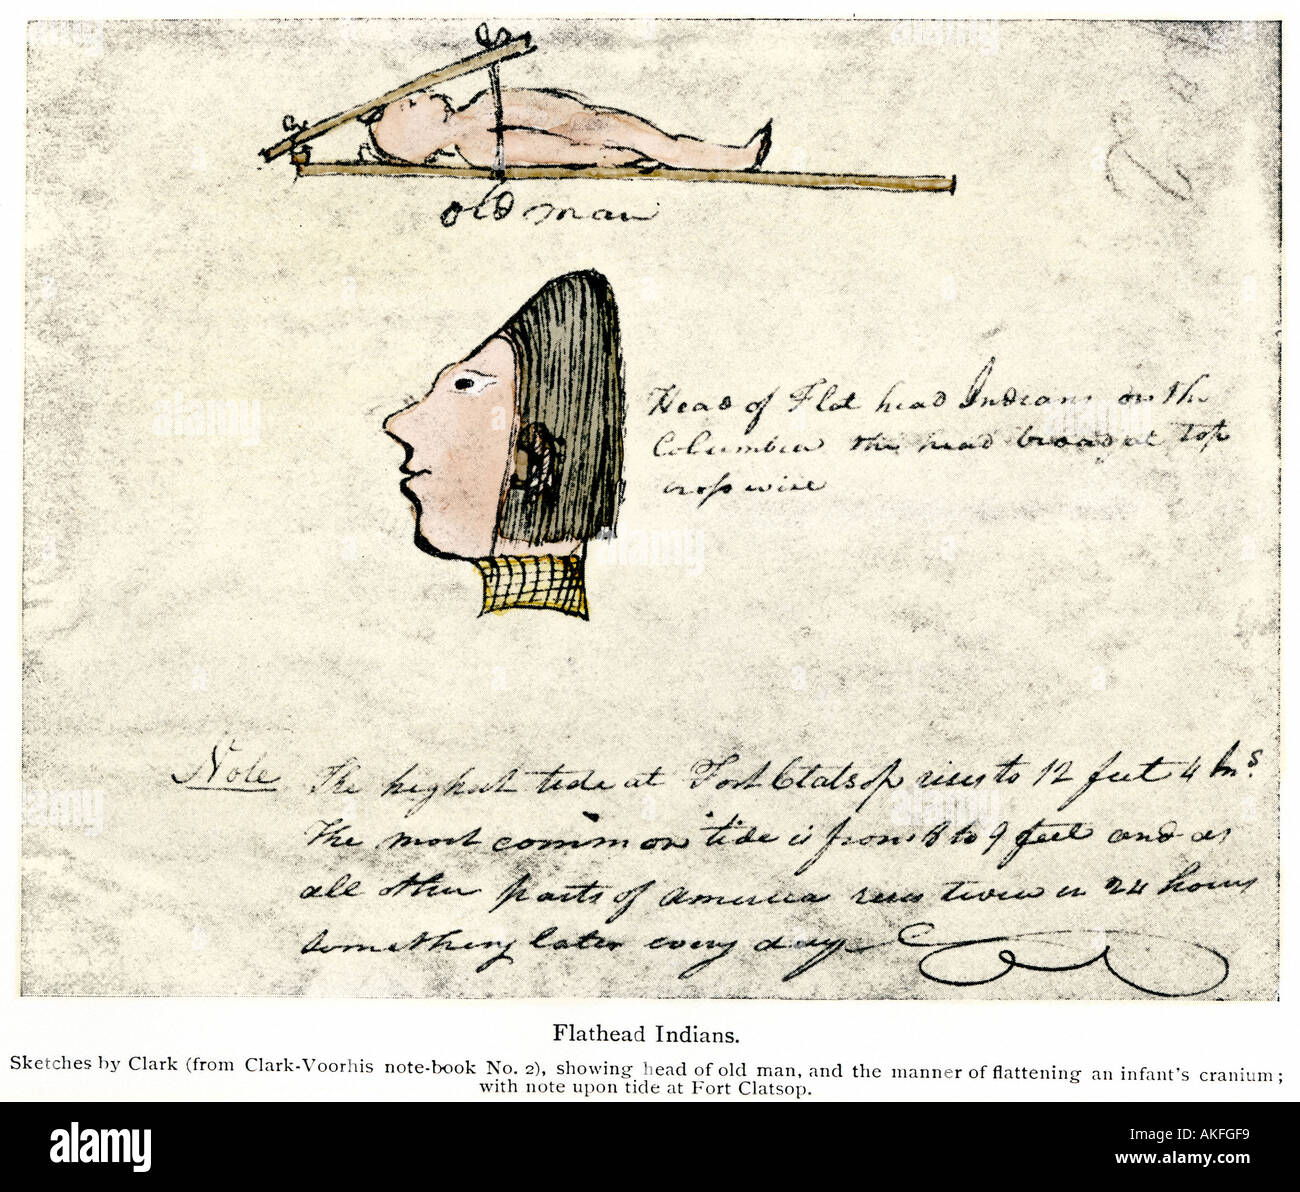 old man
Head of Flat head Indians on the
Columbia the head broad at top
cross wise
Note The highest tide at Fort Clatsop rises to 12 feet 4 Ins.
The most common tide is from 8 to 9 feet and as
all other parts of America rises twice in 24 hours
something later every day
Flathead Indians.
Sketches by Clark (from Clark-Voorhis note-book No. 2), showing head of old man, and the manner of flattening an infant's cranium;
with note upon tide at Fort Clatsop.
alamy
Image ID: AKFGF9
www.alamy.com